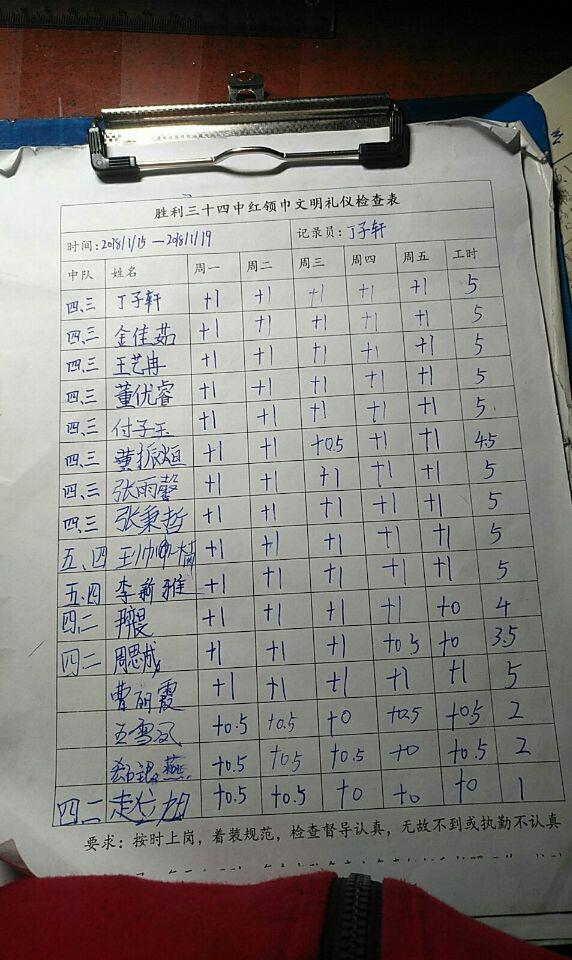 胜利三十四中红领巾文明礼仪检查表
时间: 2018/1/15 — 2018/1/19 记录员: 丁子轩
中队 姓名 周一 周二 周三 周四 周五 工时
四、三 丁子轩 +1 +1 +1 +1 +1 5
四、三 金佳茹 +1 +1 +1 +1 +1 5
四、三 王艺冉 +1 +1 +1 +1 +1 5
四、三 董优睿 +1 +1 +1 +1 +1 5
四、三 付子玉 +1 +1 +1 +1 +1 5
四、三 董振烜 +1 +1 +0.5 +1 +1 4.5
四、三 张雨馨 +1 +1 +1 +1 +1 5
四、三 张秉哲 +1 +1 +1 +1 +1 5
五、四 王帅 +1 +1 +1 +1 +1 5
五、四 李新雅 +1 +1 +1 +1 +1 5
四、二 +1 +1 +1 +1 +0 4
四二 周思成 +1 +1 +1 +0.5 +0 3.5
曹雨霞 +1 +1 +1 +1 +1 5
王雪 +0.5 +0.5 +0 +0.5 +0.5 2
燕 +0.5 +0.5 +0.5 +0 +0.5 2
四二 +0.5 +0.5 +0 +0 +0 1
要求：按时上岗，着装规范，检查督导认真，无故不到或执勤不认真